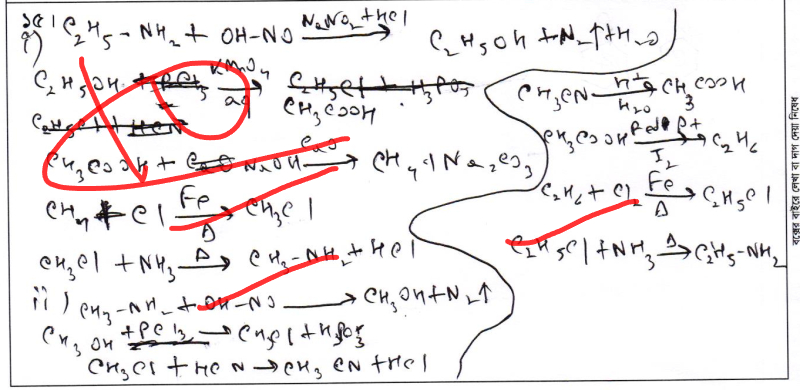 ১৫।
i) C₂H₅-NH₂ + OH-NO NaNO₂+HCl → C₂H₅OH + N₂↑ + H₂O
C₂H₅OH + PCl₃ KMnO₄ → C₂H₅Cl + H₃PO₃
CH₃COOH
C₂H₅Cl + HCN
CH₃COOH + CaO NaOH CaO → CH₄ + Na₂CO₃
CH₄ + Cl Fe Δ → CH₃Cl
CH₃Cl + NH₃ Δ → CH₃-NH₂ + HCl
ii) CH₃-NH₂ + OH-NO → CH₃OH + N₂↑
CH₃OH + PCl₃ → CH₃Cl + H₃PO₃
CH₃Cl + HCN → CH₃CN + HCl
CH₃CN H⁺ H₂O → CH₃COOH
CH₃COOH Red P+ I₂ → C₂H₆
C₂H₆ + Cl₂ Fe Δ → C₂H₅Cl
C₂H₅Cl + NH₃ Δ → C₂H₅-NH₂
বক্সের বাইরে লেখা বা দাগ দেয়া নিষেধ